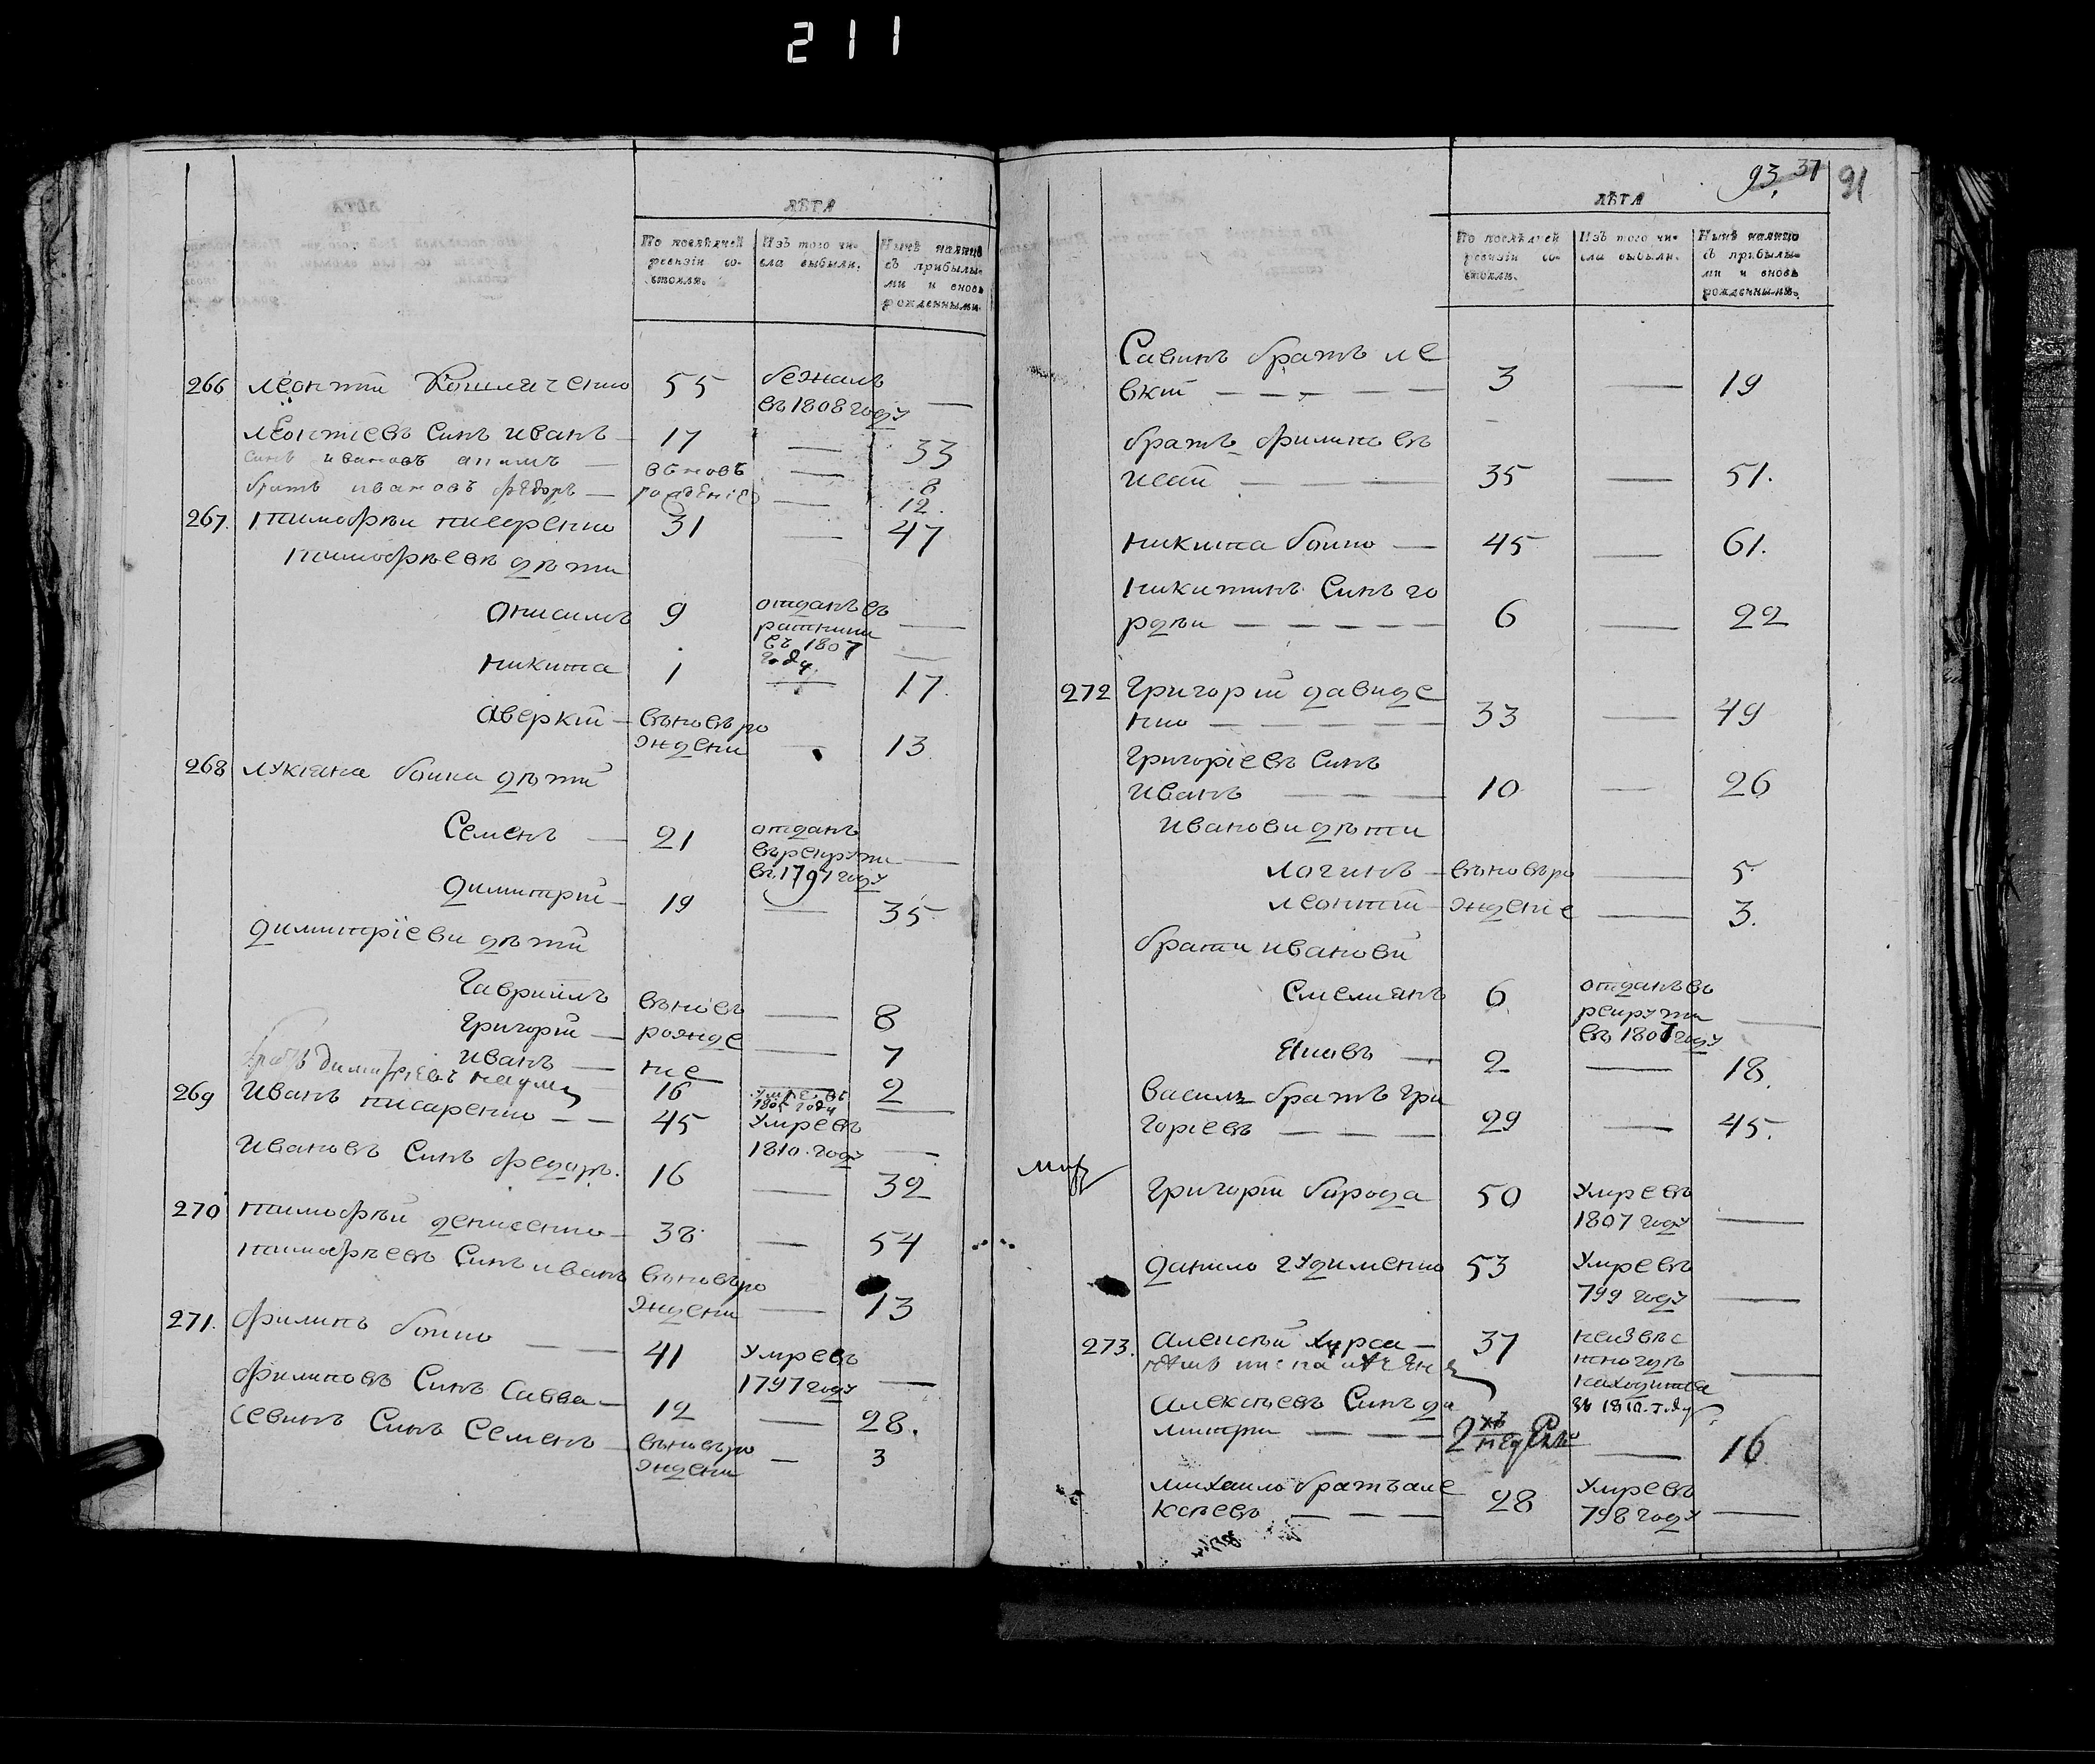 211
ЛѢТА
По послѣдней
ревизіи со-
стояли.
Изъ того чи-
сла выбыли.
Нынѣ налицо
съ прибылы-
ми и вновь
рожденными.
266 Леонтій 55 бежалъ
въ 1808 году —
Леонтіевъ Синъ иванъ — 17 — 33
Синъ ивановъ — вновъ — 8
братъ ивановъ федоръ — рожденіе — 12.
267. тимофѣи писаренко 31 — 47
тимофѣевѣ дѣти
Онисимъ 9 отданъ въ
ратники —
въ 1807
году
никита 1 — 17.
Аверкій — въновъ ро
ждени — 13
268 лукіана боика дѣти
Семенъ — 21 отданъ
въ рекрути —
въ 1797 году
Димитрій — 19 — 35
Димитріеви дѣти
Гавріилъ вънов — 8
Григорій — рожде — 7
иванъ — ние 2
братъ димитріевъ наумъ 16 умре въ
1805 году —
269 Иванъ писаренко — — 45 Умре въ
1810. году —
Ивановъ Синъ федоръ. 16 — 32
270 тимофѣй денисенко — 38 — 54
тимофѣевъ Синъ иванъ въновъ ро
ждени — 13
271. филипъ боико — — 41 Умре въ
1797 году —
филиповъ Синъ Савва — 12 — 28.
Севинъ Синъ Семенъ — вънов ро
ждени — 3
93, 37
91
ЛѢТА
По послѣдней
ревизіи со-
стояли.
Изъ того чи-
сла выбыли.
Нынѣ налицо
съ прибылы-
ми и вновь
рожденными.
Савинъ братъ ле
вкій — — — — — 3 — 19
братъ филиповъ
исай — — — 35 — 51.
никита боико — 45 — 61.
никитинъ Синъ го
рдѣи — — — — — 6 — 22
272 Григорій давиде
нко — — — — — 33 — 49
Григоріевъ Синъ
иванъ — — — 10 — 26
ивановидѣти
логинъ — въновъро — 5.
леонтій — ждение — 3.
брати иванови
Смелианъ 6 отданъ въ
рекрути —
въ 1807 году
Яковъ — 2 — 18.
василъ братъ гри
горіевъ — — — 29 — 45.
Григорій борода 50 Умре въ
1807 году —
Данило гудименко 53 Умре въ
799 году —
273. Алексѣй — 37 неизвѣс
но гдѣ —
находится
въ 1810. году.
Алексѣевъ Синъ ди
митри — — — 2 — 16
михаило братъ але
ксѣевъ — — — 28 Умре въ
798 году —